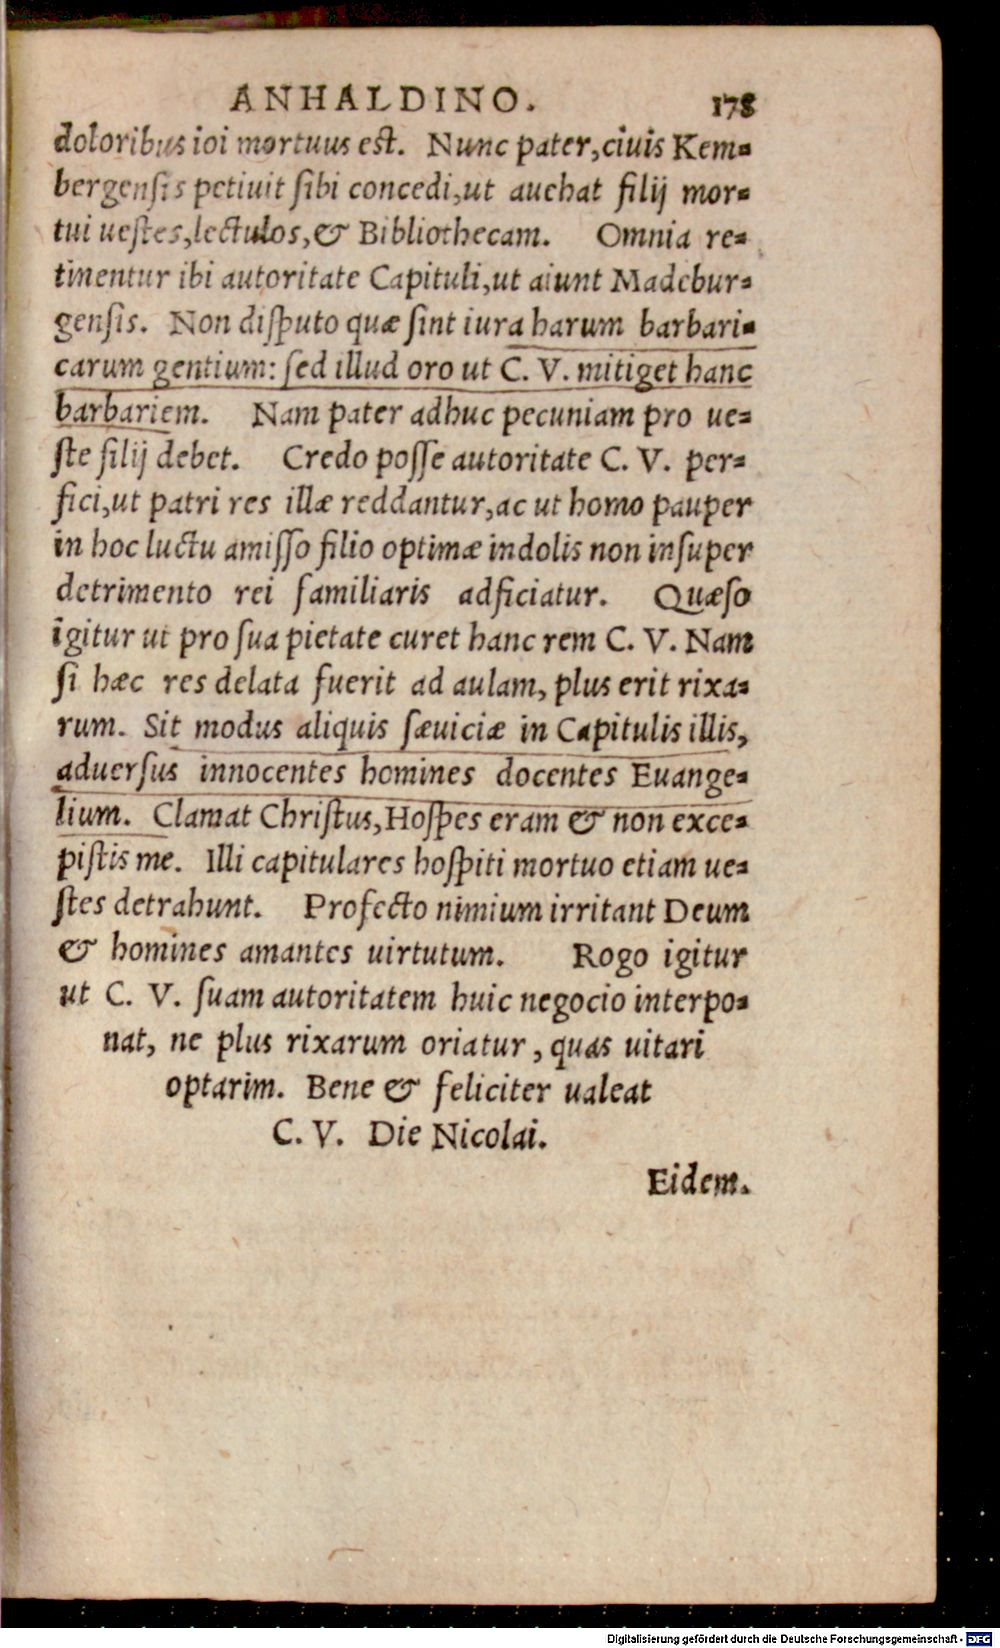 ANHALDINO. 178
doloribus ibi mortuus est. Nunc pater, ciuis Kem-
bergensis petiuit sibi concedi, ut auehat filij mor-
tui uestes, lectulos, & Bibliothecam. Omnia re-
tinentur ibi autoritate Capituli, ut aiunt Madebur-
gensis. Non disputo quæ sint iura harum barbari-
carum gentium: sed illud oro ut C. V. mitiget hanc
barbariem. Nam pater adhuc pecuniam pro ue-
ste filij debet. Credo posse autoritate C. V. per-
fici, ut patri res illæ reddantur, ac ut homo pauper
in hoc luctu amisso filio optimæ indolis non insuper
detrimento rei familiaris adficiatur. Quæso
igitur ut pro sua pietate curet hanc rem C. V. Nam
si hæc res delata fuerit ad aulam, plus erit rixa-
rum. Sit modus aliquis sæuiciæ in Capitulis illis,
aduersus innocentes homines docentes Euange-
lium. Clamat Christus, Hospes eram & non exce-
pistis me. Illi capitulares hospiti mortuo etiam ue-
stes detrahunt. Profecto nimium irritant Deum
& homines amantes uirtutum. Rogo igitur
ut C. V. suam autoritatem huic negocio interpo-
nat, ne plus rixarum oriatur, quas uitari
optarim. Bene & feliciter ualeat
C. V. Die Nicolai.
Eidem.
Digitalisierung gefördert durch die Deutsche Forschungsgemeinschaft - DFG